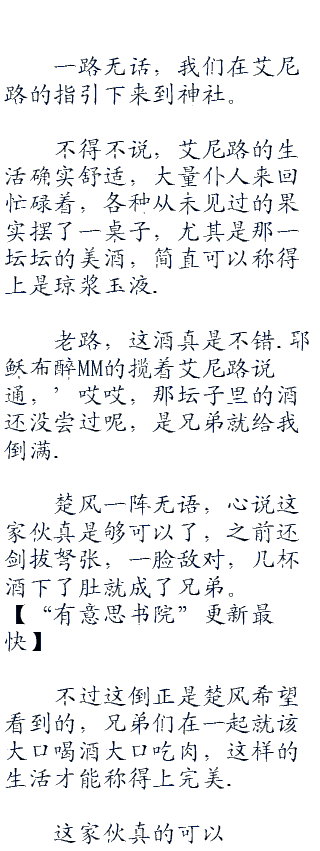 一路无话，我们在艾尼
路的指引下来到神社。
不得不说，艾尼路的生
活确实舒适，大量仆人来回
忙碌着，各种从未见过的果
实摆了一桌子，尤其是那一
坛坛的美酒，简直可以称得
上是琼浆玉液.
老路，这酒真是不错.耶
稣布醉MM的揽着艾尼路说
通，’哎哎，那坛子里的酒
还没尝过呢，是兄弟就给我
倒满.
楚风一阵无语，心说这
家伙真是够可以了，之前还
剑拔弩张，一脸敌对，几杯
酒下了肚就成了兄弟。
【“有意思书院”更新最
快】
不过这倒正是楚风希望
看到的，兄弟们在一起就该
大口喝酒大口吃肉，这样的
生活才能称得上完美.
这家伙真的可以